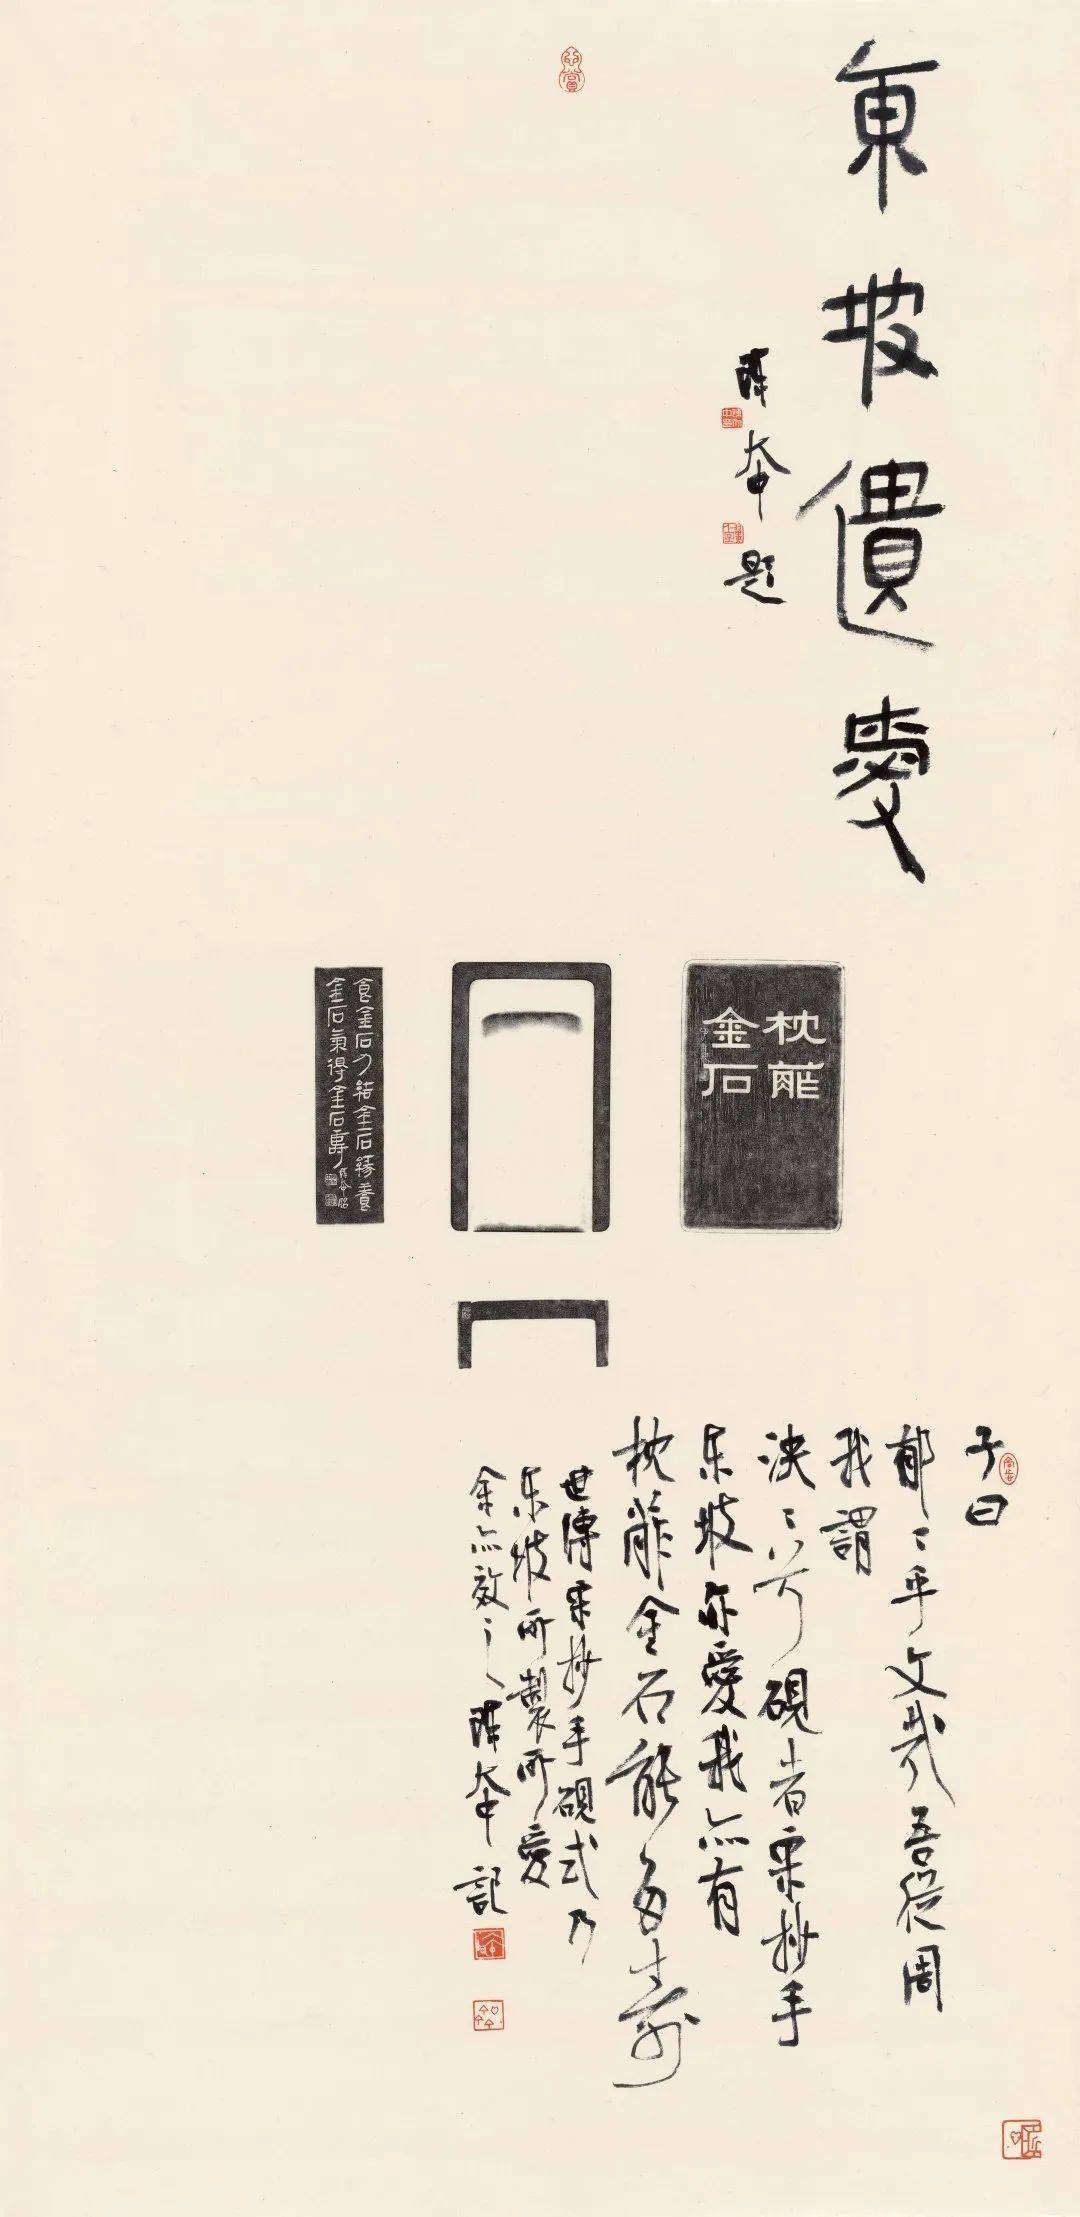 東坡遺愛
陳大中題
枕葄
金石
食金石力結金石緣養
金石氣得金石壽
子曰
郁〻乎文哉吾從周
我謂
泱〻兮硯者宋抄手
東坡亦愛我亦有
枕葄金石能多壽
世傳宋抄手硯式乃
東坡所製所愛
余亦效之陳大中記